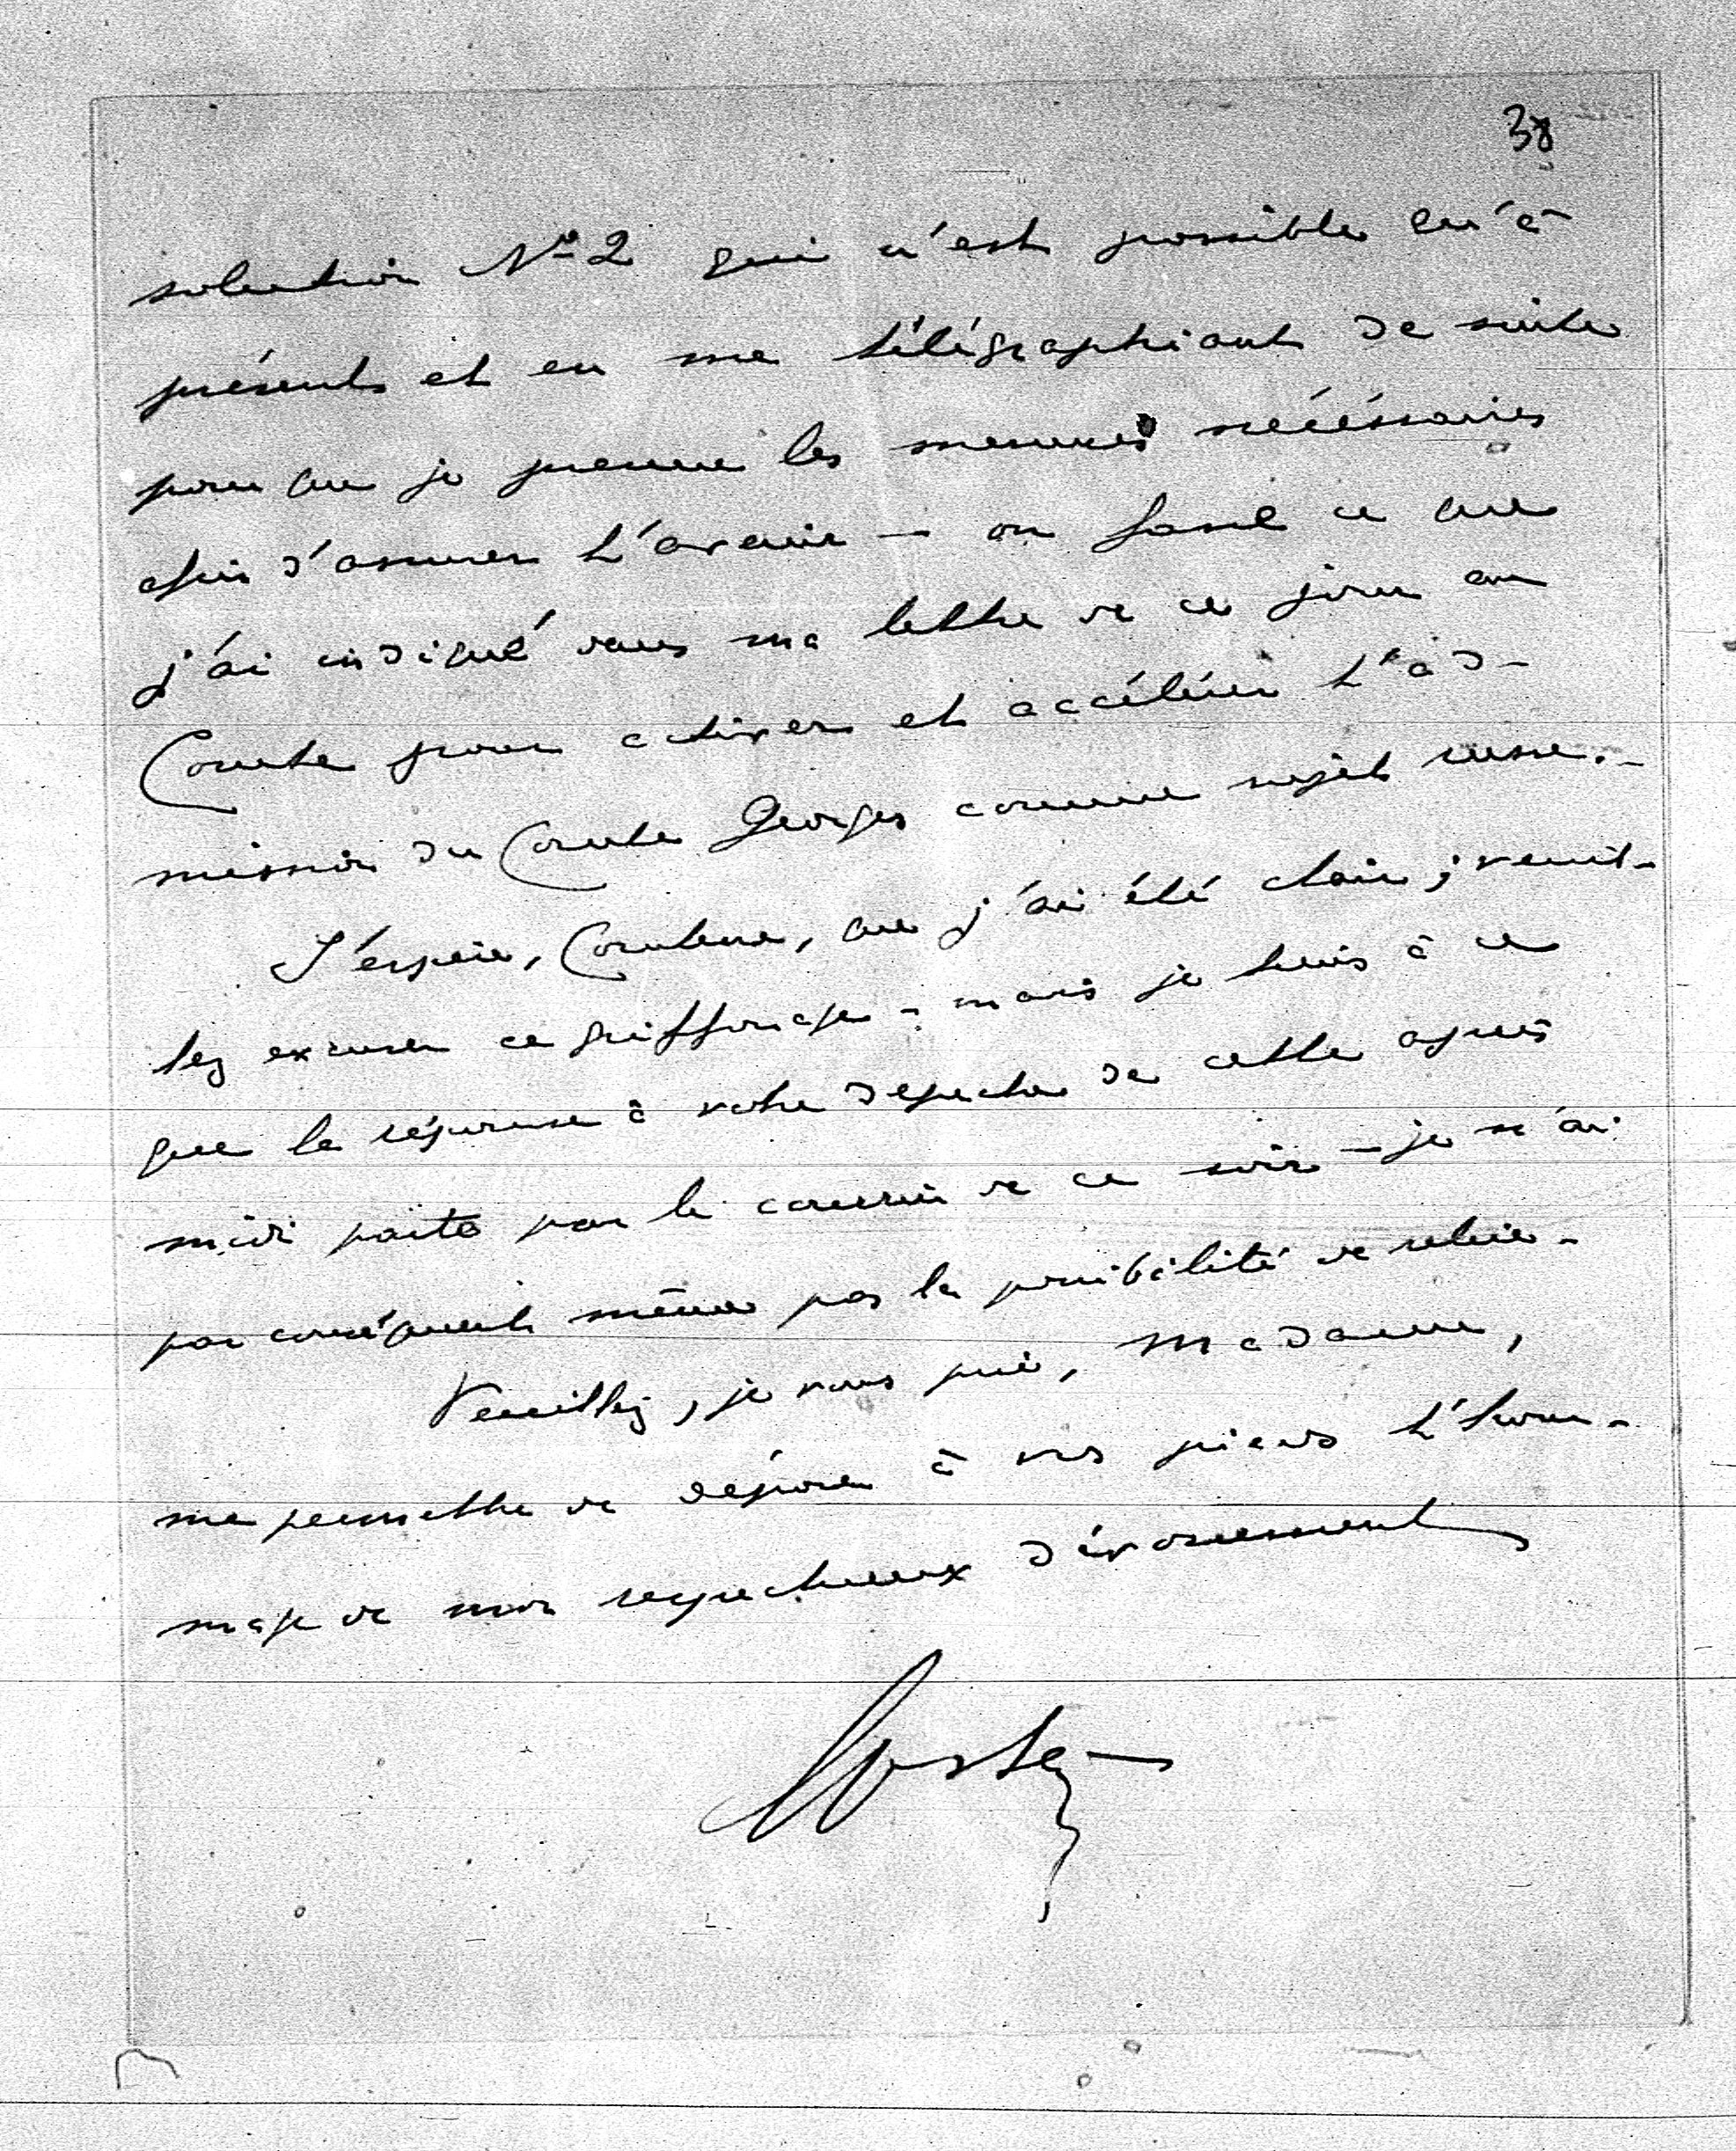 38
solution No 2 qui n'est possible qu'à
présent et en me télégraphiant de suite
pour que je prenne les mesures nécéssaires
afin d'assurer l'avenir — ou fassè ce que
j'ai indiqué dans ma lettre de ce jour au
Comte pour activer et accélérer l'ad-
mission du Comte Georges comme sujet russe.-
J'espère, Comtesse, que j'ai été clair; veuil-
lez excuser ce griffonage - mais je tiens à ce
que la réponse à votre depeche de cette après
midi parte par le courrier de ce soir — je n'ai
par conséquent même pas la possibilité de relire -
Veuillez, je vous prie, Madame,
me permettre de déposer à vos pieds l'hom-
mage de mon respectueux dévouement